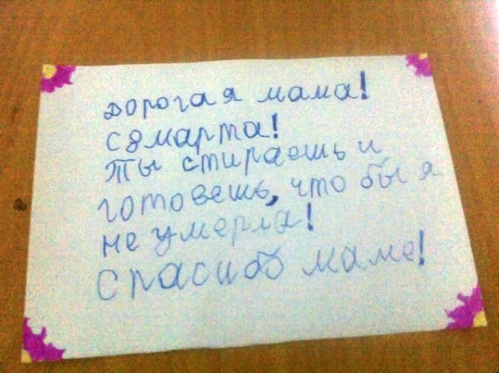 дорогая мама!
с 8 марта!
Ты стираешь и
готовешь, что бы я
не умерла!
спасибо маме!